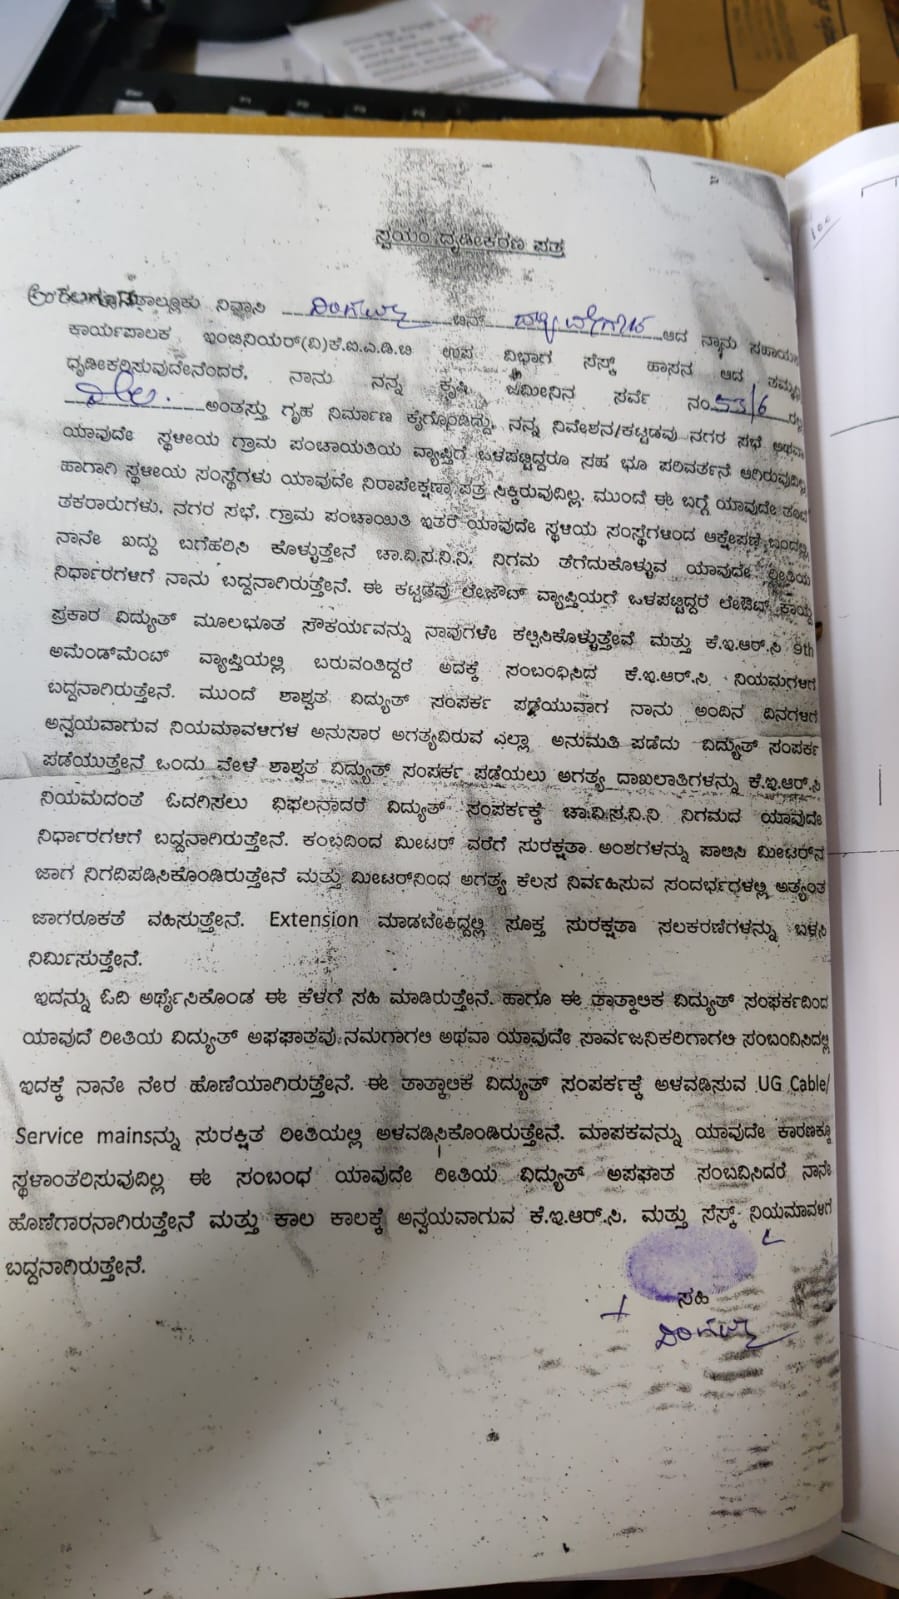 ಸ್ವಯಂ ದೃಡೀಕರಣ ಪತ್ರ
ತಾಲ್ಲೂಕು ನಿವಾಸಿ ಬಿನ್ ಆದ ನಾನು ಸಹಾಯಕ
ಕಾರ್ಯಪಾಲಕ ಇಂಜಿನಿಯರ್(ವಿ)ಕೆ.ಐ.ಎ.ಡಿ.ಬಿ ಉಪ ವಿಭಾಗ ಸೆಸ್ಕ್ ಹಾಸನ ಆದ ತಮ್ಮಲ್ಲಿ
ಧೃಡೀಕರಿಸುವುದೇನೆಂದರೆ, ನಾನು ನನ್ನ ಕೃಷಿ ಜಮೀನಿನ ಸರ್ವೆ ನಂ 53/6 ರಲ್ಲಿ
ಅಂತಸ್ತು ಗೃಹ ನಿರ್ಮಾಣ ಕೈಗೊಂಡಿದ್ದು, ನನ್ನ ನಿವೇಶನ/ಕಟ್ಟಡವು ನಗರ ಸಭೆ ಅಥವಾ
ಯಾವುದೇ ಸ್ಥಳೀಯ ಗ್ರಾಮ ಪಂಚಾಯತಿಯ ವ್ಯಾಪ್ತಿಗೆ ಒಳಪಟ್ಟಿದ್ದರೂ ಸಹ ಭೂ ಪರಿವರ್ತನೆ ಆಗಿರುವುದಿಲ್ಲ
ಹಾಗಾಗಿ ಸ್ಥಳೀಯ ಸಂಸ್ಥೆಗಳು ಯಾವುದೇ ನಿರಾಪೇಕ್ಷಣಾ ಪತ್ರ ಸಿಕ್ಕಿರುವುದಿಲ್ಲ. ಮುಂದೆ ಈ ಬಗ್ಗೆ ಯಾವುದೇ ತಂಟೆ
ತಕರಾರುಗಳು, ನಗರ ಸಭೆ, ಗ್ರಾಮ ಪಂಚಾಯಿತಿ ಇತರೆ ಯಾವುದೇ ಸ್ಥಳಿಯ ಸಂಸ್ಥೆಗಳಿಂದ ಆಕ್ಷೇಪಣೆ ಬಂದಲ್ಲಿ
ನಾನೇ ಖದ್ದು ಬಗೆಹರಿಸಿ ಕೊಳ್ಳುತ್ತೇನೆ ಚಾ.ವಿ.ಸ.ನಿ.ನಿ. ನಿಗಮ ತೆಗೆದುಕೊಳ್ಳುವ ಯಾವುದೇ ರೀತಿಯ
ನಿರ್ಧಾರಗಳಿಗೆ ನಾನು ಬದ್ದನಾಗಿರುತ್ತೇನೆ. ಈ ಕಟ್ಟಡವು ಲೇಔಟ್ ವ್ಯಾಪ್ತಿಯಗೆ ಒಳಪಟ್ಟಿದ್ದರೆ ಲೇಔಟ್ ಕಾಯ್ದೆ
ಪ್ರಕಾರ ವಿದ್ಯುತ್ ಮೂಲಭೂತ ಸೌಕರ್ಯವನ್ನು ನಾವುಗಳೇ ಕಲ್ಪಿಸಿಕೊಳ್ಳುತ್ತೇವೆ ಮತ್ತು ಕೆ.ಇ.ಆರ್.ಸಿ 9th
ಅಮೆಂಡ್‌ಮೆಂಟ್ ವ್ಯಾಪ್ತಿಯಲ್ಲಿ ಬರುವಂತಿದ್ದರೆ ಅದಕ್ಕೆ ಸಂಬಂಧಿಸಿದ ಕೆ.ಇ.ಆರ್.ಸಿ ನಿಯಮಗಳಿಗೆ
ಬದ್ದನಾಗಿರುತ್ತೇನೆ. ಮುಂದೆ ಶಾಶ್ವತ ವಿದ್ಯುತ್ ಸಂಪರ್ಕ ಪಡೆಯುವಾಗ ನಾನು ಅಂದಿನ ದಿನಗಳಿಗೆ
ಅನ್ವಯವಾಗುವ ನಿಯಮಾವಳಿಗಳ ಅನುಸಾರ ಅಗತ್ಯವಿರುವ ಎಲ್ಲಾ ಅನುಮತಿ ಪಡೆದು ವಿದ್ಯುತ್ ಸಂಪರ್ಕ
ಪಡೆಯುತ್ತೇನೆ ಒಂದು ವೇಳೆ ಶಾಶ್ವತ ವಿದ್ಯುತ್ ಸಂಪರ್ಕ ಪಡೆಯಲು ಅಗತ್ಯ ದಾಖಲಾತಿಗಳನ್ನು ಕೆ.ಇ.ಆರ್.ಸಿ
ನಿಯಮದಂತೆ ಓದಗಿಸಲು ವಿಫಲನಾದರೆ ವಿದ್ಯುತ್ ಸಂಪರ್ಕಕ್ಕೆ ಚಾ.ವಿ.ಸ.ನಿ.ನಿ ನಿಗಮದ ಯಾವುದೇ
ನಿರ್ಧಾರಗಳಿಗೆ ಬದ್ದನಾಗಿರುತ್ತೇನೆ. ಕಂಬದಿಂದ ಮೀಟರ್ ವರೆಗೆ ಸುರಕ್ಷತಾ ಅಂಶಗಳನ್ನು ಪಾಲಿಸಿ ಮೀಟರ್‌ನ
ಜಾಗ ನಿಗದಿಪಡಿಸಿಕೊಂಡಿರುತ್ತೇನೆ ಮತ್ತು ಮೀಟರ್‌ನಿಂದ ಅಗತ್ಯ ಕೆಲಸ ನಿರ್ವಹಿಸುವ ಸಂದರ್ಭಗಳಲ್ಲಿ ಅತ್ಯಂತ
ಜಾಗರೂಕತೆ ವಹಿಸುತ್ತೇನೆ. Extension ಮಾಡಬೇಕಿದ್ದಲ್ಲಿ ಸೂಕ್ತ ಸುರಕ್ಷತಾ ಸಲಕರಣೆಗಳನ್ನು ಬಳಸಿ
ನಿರ್ಮಿಸುತ್ತೇನೆ.
ಇದನ್ನು ಓದಿ ಅರ್ಥೈಸಿಕೊಂಡ ಈ ಕೆಳಗೆ ಸಹಿ ಮಾಡಿರುತ್ತೇನೆ. ಹಾಗೂ ಈ ತಾತ್ಕಾಲಿಕ ವಿದ್ಯುತ್ ಸಂಪರ್ಕದಿಂದ
ಯಾವುದೆ ರೀತಿಯ ವಿದ್ಯುತ್ ಅಫಘಾತವು ನಮಗಾಗಲಿ ಅಥವಾ ಯಾವುದೇ ಸಾರ್ವಜನಿಕರಿಗಾಗಲಿ ಸಂಬಂವಿಸಿದಲ್ಲಿ
ಇದಕ್ಕೆ ನಾನೇ ನೇರ ಹೊಣೆಯಾಗಿರುತ್ತೇನೆ. ಈ ತಾತ್ಕಾಲಿಕ ವಿದ್ಯುತ್ ಸಂಪರ್ಕಕ್ಕೆ ಅಳವಡಿಸುವ UG Cable/
Service mainsನ್ನು ಸುರಕ್ಷಿತ ರೀತಿಯಲ್ಲಿ ಅಳವಡಿಸಿಕೊಂಡಿರುತ್ತೇನೆ. ಮಾಪಕವನ್ನು ಯಾವುದೇ ಕಾರಣಕ್ಕೂ
ಸ್ಥಳಾಂತರಿಸುವುದಿಲ್ಲ ಈ ಸಂಬಂಧ ಯಾವುದೇ ರೀತಿಯ ವಿದ್ಯುತ್ ಅಪಘಾತ ಸಂಬವಿಸಿದರೆ ನಾನೇ
ಹೊಣೆಗಾರನಾಗಿರುತ್ತೇನೆ ಮತ್ತು ಕಾಲ ಕಾಲಕ್ಕೆ ಅನ್ವಯವಾಗುವ ಕೆ.ಇ.ಆರ್.ಸಿ. ಮತ್ತು ಸೆಸ್ಕ್ ನಿಯಮಾವಳಿಗೆ
ಬದ್ದನಾಗಿರುತ್ತೇನೆ.
ಸಹಿ